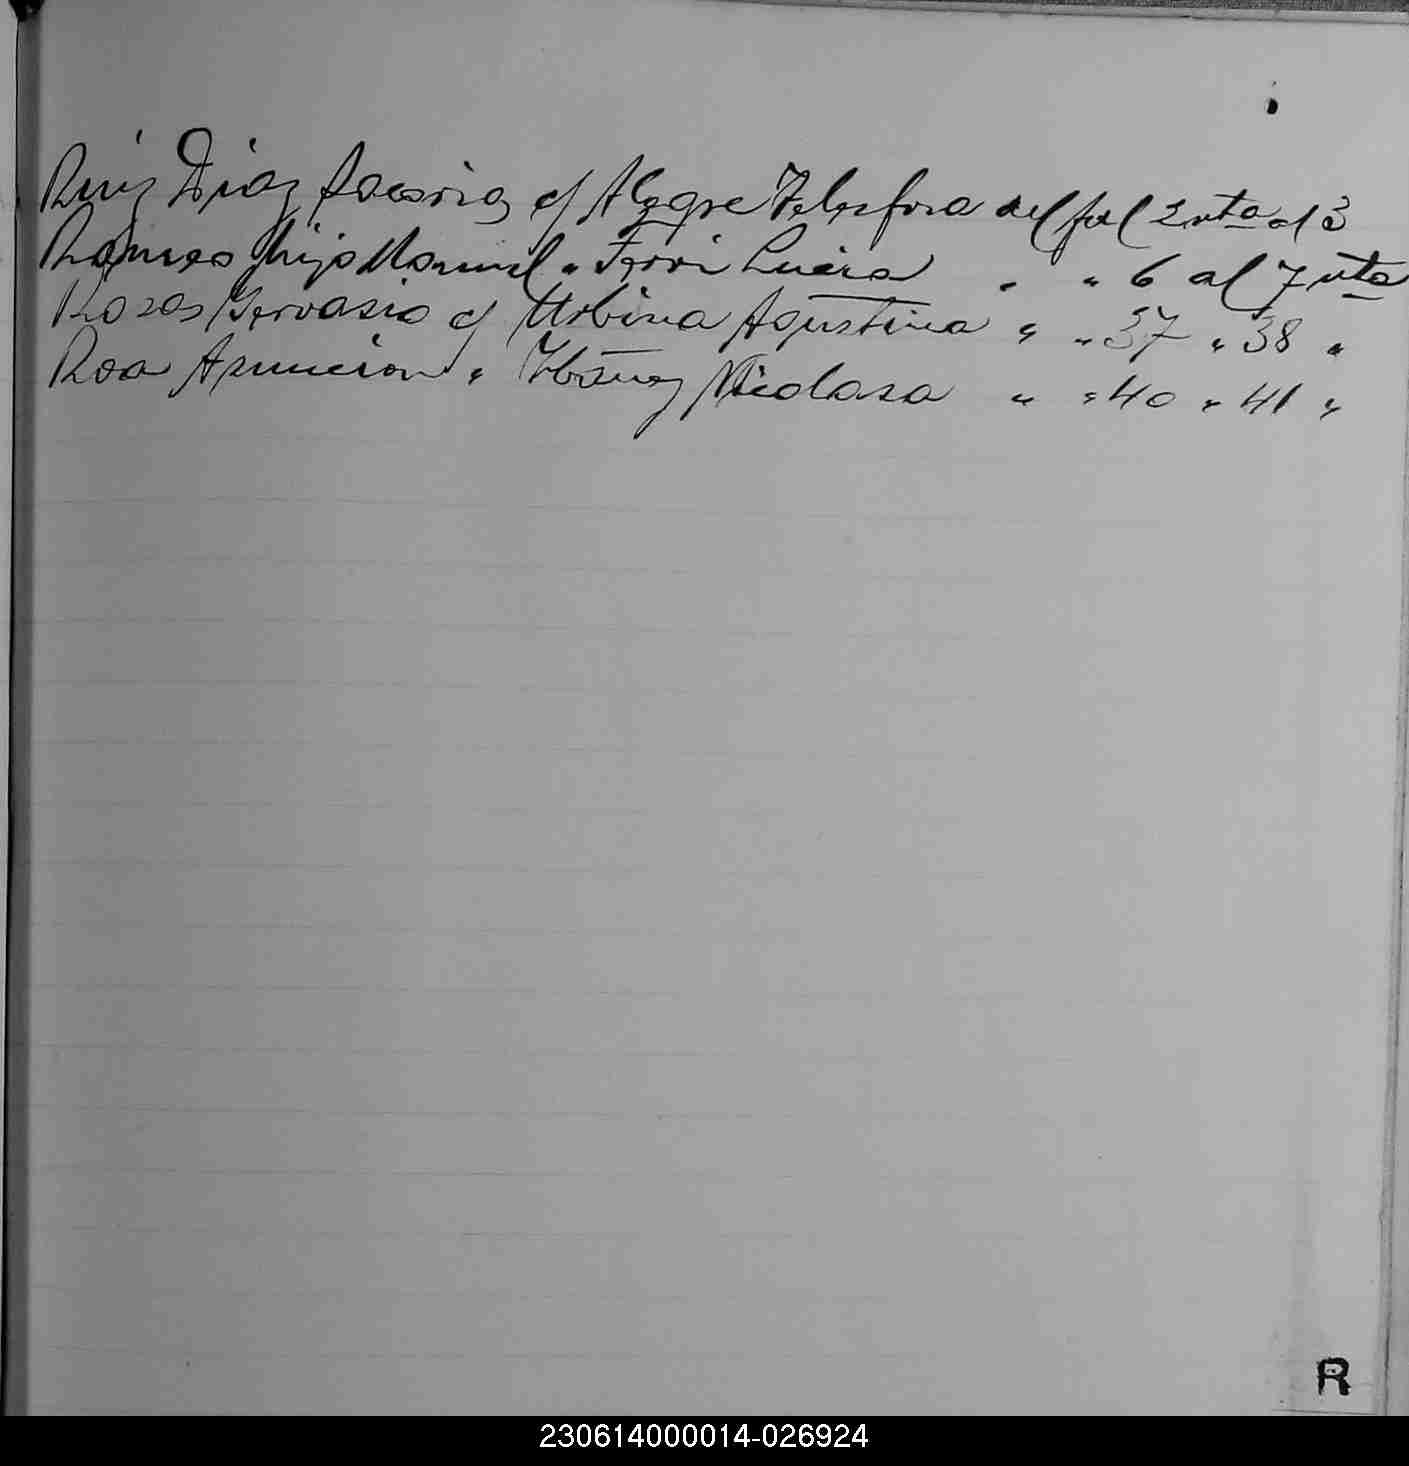 Ruiz Diaz c/ Alegre Telesfora del fol 2 vta al 3
Romero hijo Manuel " Ferri Lucia " " 6 al 7 vta
Rosas Gervasio c/ Urbina Agustina " " 37 " 38 "
Roa Asuncion " Ibañez Nicolasa " " 40 " 41 "
R
230614000014-026924